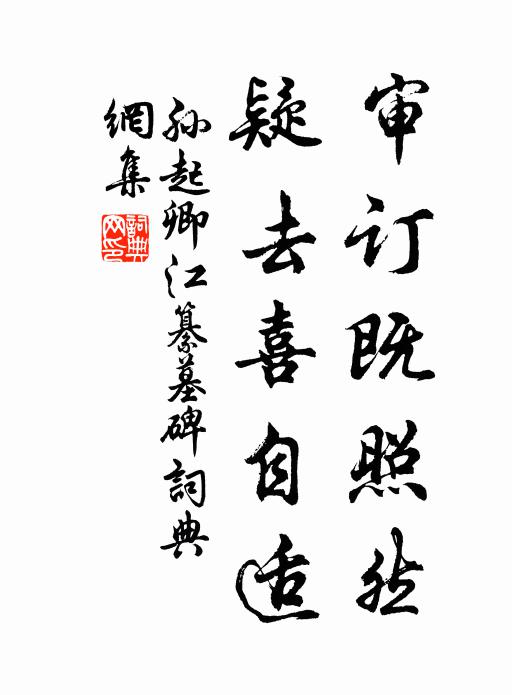 审订既照然
疑去喜自适
孙起卿江纂墓碑詞典
網集
詞典網印